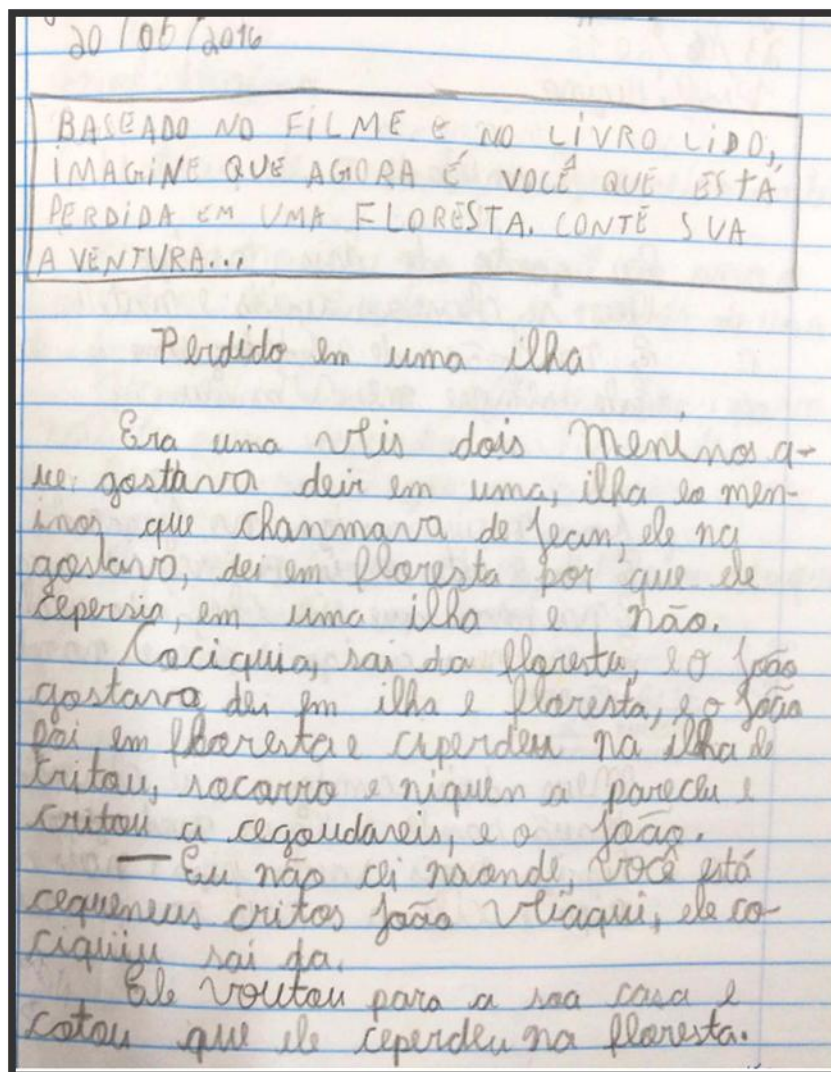 20/05/2016
BASEADO NO FILME E NO LIVRO LIDO,
IMAGINE QUE AGORA É VOCÊ QUE ESTÁ
PERDIDA EM UMA FLORESTA. CONTE SUA
AVENTURA...
Perdido em uma ilha
Era uma vlis dois meninos q-
ue, gostava deir em uma, ilha eo men-
inos que chanmava de Jean, ele na
gostava, dei em floresta por que ele
ceperdis, em uma ilha e não.
Cociquia, sai da floresta, e o João
gostava dei em ilha e floresta, e o João
foi em floresta e ceperdeu na ilha ele
critou, socorro e niquen a pareceu e
critou a cegoudaveis, e o João.
— Eu não cei naonde, você está
cequeneus critos João vliaqui, ele co-
ciquiu sai da.
Ele voutou para a sua casa e
cotou que ele ceperdeu na floresta.